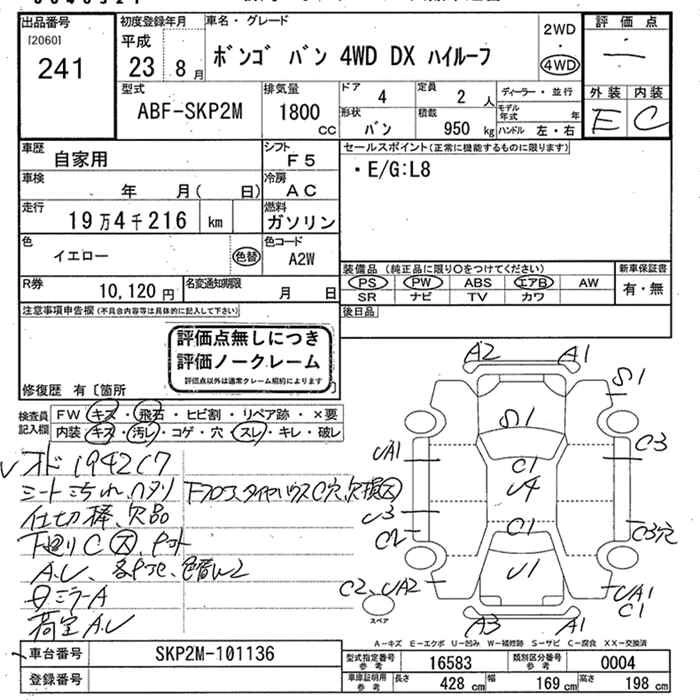 出品番号
[2060]
241
初度登録年月
平成
23 8月
車名・グレード
ボンゴ バン 4WD DX ハイルーフ
2WD
・
4WD
評価点
一
外装 内装
E C
型式
ABF-SKP2M
排気量
1800
CC
ドア
4
定員
2 人
形状
バン
積載
950 kg
ディーラー・並行
モデル年式 年
ハンドル 左・右
車歴
自家用
シフト
F5
車検
年 月( 日)
冷房
AC
走行
19万4千216 km
燃料
ガソリン
色
イエロー
色替
色コード
A2W
R券
10,120円
名変通知期限
月 日
セールスポイント(正常に機能するものに限ります)
・E/G:L8
装備品 (純正品に限り○をつけてください)
PS PW ABS エアB AW
SR ナビ TV カワ
新車保証書
有・無
後日品
注意事項申告欄(不具合内容等は具体的に記入して下さい)
評価点無しにつき
評価ノークレーム
評価点以外は通常クレーム規約によります
修復歴 有〔箇所
検査員記入欄
FW キズ・飛石・ヒビ割・リペア跡・×要
内装 キズ・汚レ・コゲ・穴・スレ・キレ・破レ
シートよごれ、ハタリ
仕切棒、欠品
下廻りC大
A.U、
ミラーA
荷室A.U
A2 A1
S1
S1
UA1
C3
C1
U4
U3
C2
C1
C3穴
U1
C2、UA2
UA1
C1
スペア
A3 A1
A−キズ E−エクボ U−凹み W−補修跡 S−サビ C−腐食 XX−交換済
車台番号
SKP2M-101136
登録番号
型式指定番号 参考
16583
類別区分番号 参考
0004
車庫証明用 参考
長さ 428 cm
幅 169 cm
高さ 198 cm